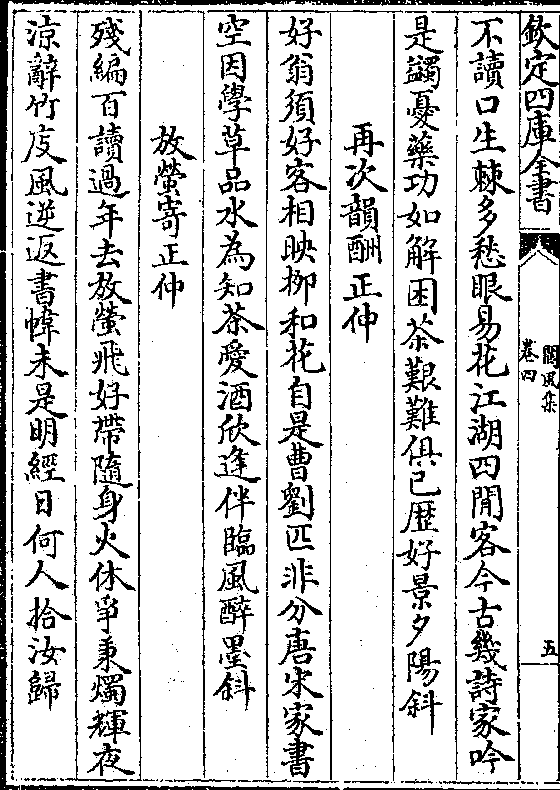 欽定四庫全書
閬風集
卷四
五
不讀口生棘多愁眼易花江湖四閒客今古幾詩家吟
是蠲憂藥功如解困茶艱難俱已歴好景夕陽斜
再次韻酬正仲
好翁須好客相映栁和花自是曹劉匹非分唐宋家書
空因學草品水為知茶愛酒欣逢伴臨風醉墨斜
放螢寄正仲
殘編百讀過年去放螢飛好帶隨身火休爭秉燭輝夜
涼辭竹度風逆返書幃未是明經日何人拾汝歸